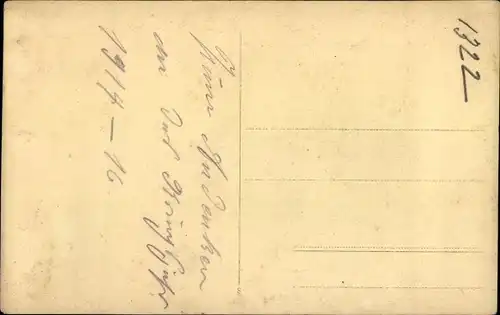 Zum Andenken
an das Kriegsjahr
1914 – 16.
1322